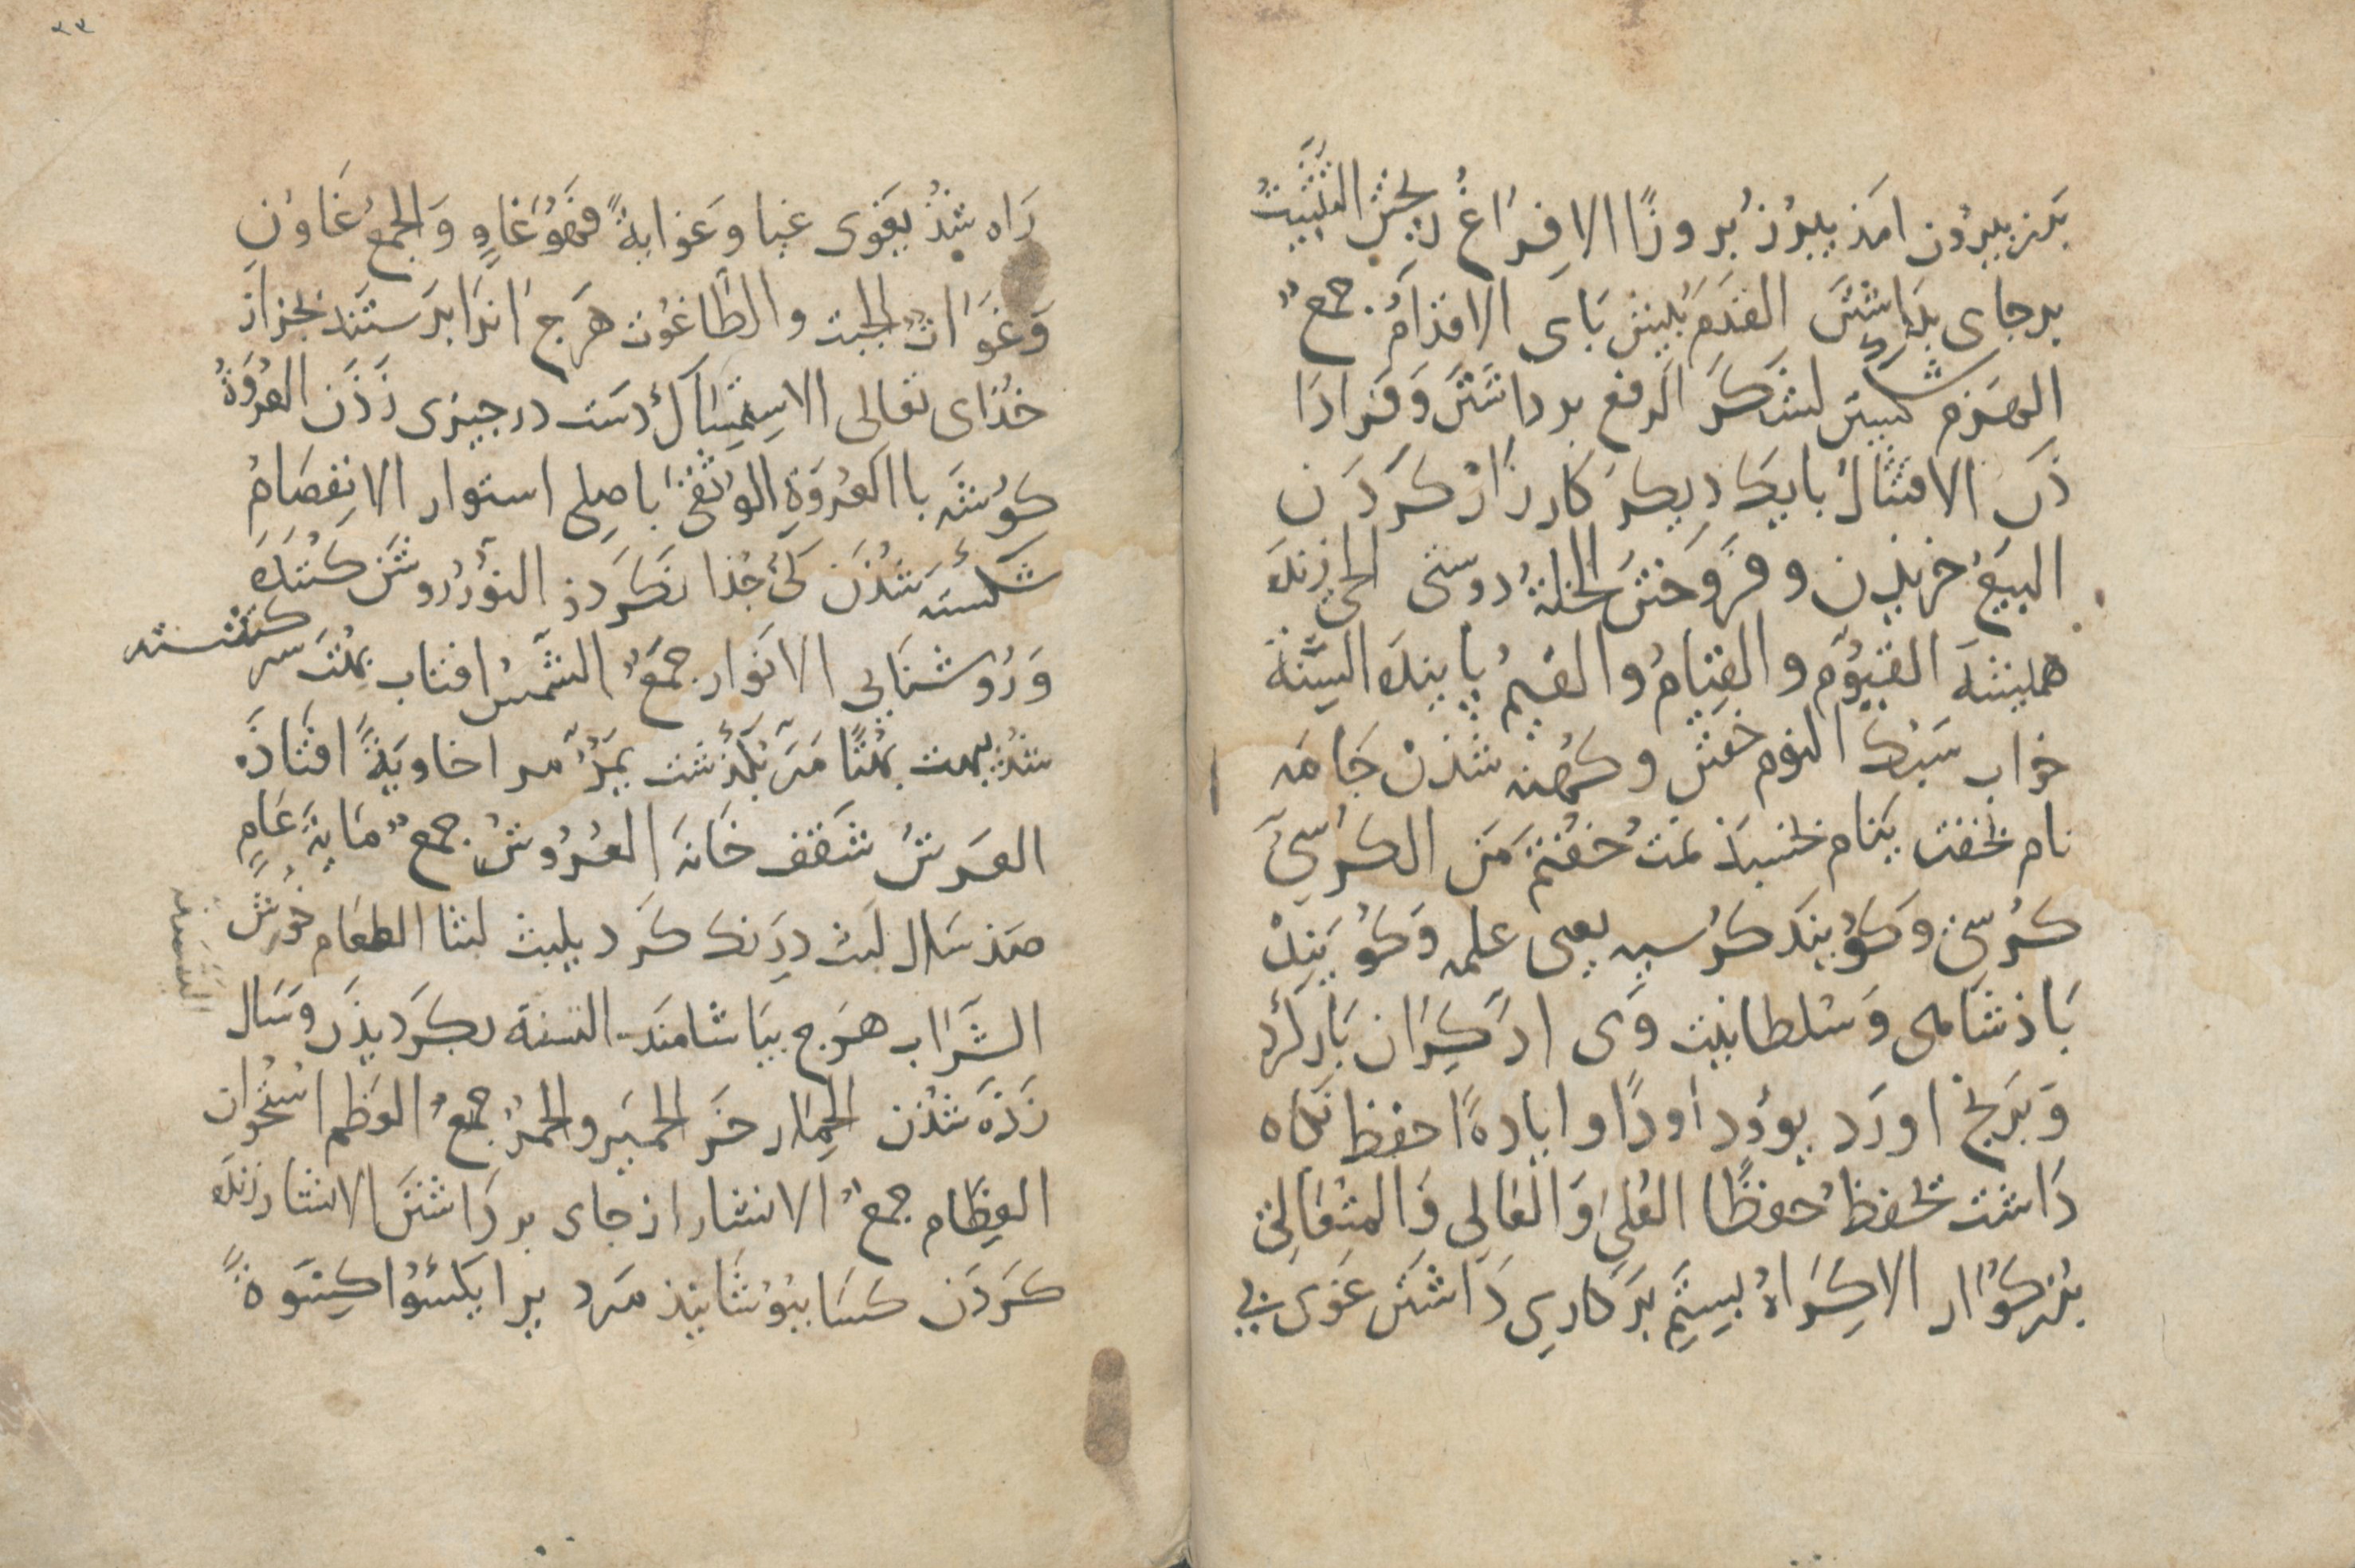 برز بیرون امذ یبرز بُروزًا الافراغ ریختن التثبیت
برجای بداشتن القدم پیش پای الاقدام جمعٌ
الهزم شکستن لشکر الرفع برداشتن وفرادا
ذن الاقتتال بایک دیکر کارزار کردن
البیع خریذن و فروختن الخلة دوستی الحی زنده
همیشه القیوم والقیام والقیم پاینده السنة
خواب سبک النوم خفتن و کهنه شذن جامه
نام بخفت ینام بخسبذ نمت خفتم من الکرسی
کرسی و کویند کرسیه یعنی علمه و کویند
باذشاهی و سلطانیت وی اد کران بار کرد
و برنج اورد یوود اودًا وایادةً احفظ نکاه
داشت تحفظ حفظًا العلی والعالی والمتعالی
بزرکوار الاکراه بستم برکاری داشتن غوی بی
راه شذ یغوی غیا وغوایةً فهو غاوٍ والجمع غاون
وغواة الجبت والطاغوت هرج انرا برستند بجز از
خذای تعالی الاستمساک دست در جیزی زذن العروة
کوشه با العروة الوثقی باصلی استوار الانفصام
شکسته شذن کی جذا نکردذ النور روشن کننده
وروشنایی الانوار جمعٌ الشمس افتاب بهت سرکشته
شذ یبهت بهتًا مر بکذشت یمر مرا خاویة افتاذه
العرش سقف خانه العروش جمعٌ مایة عام
صذ سال لبث درنک کرد یلبث لبثا الطعام خورش
الشراب هرج بیاشامند التسنه بکردیذن وسال
زذه شذن الحمار خر الحمیر والحمر جمعٌ العظم استخوان
العظام جمعٌ الانشاز از جای برداشتن الانشار زنده
کردن کسا بپوشانیذ مرد برا یکسوا کسوةً